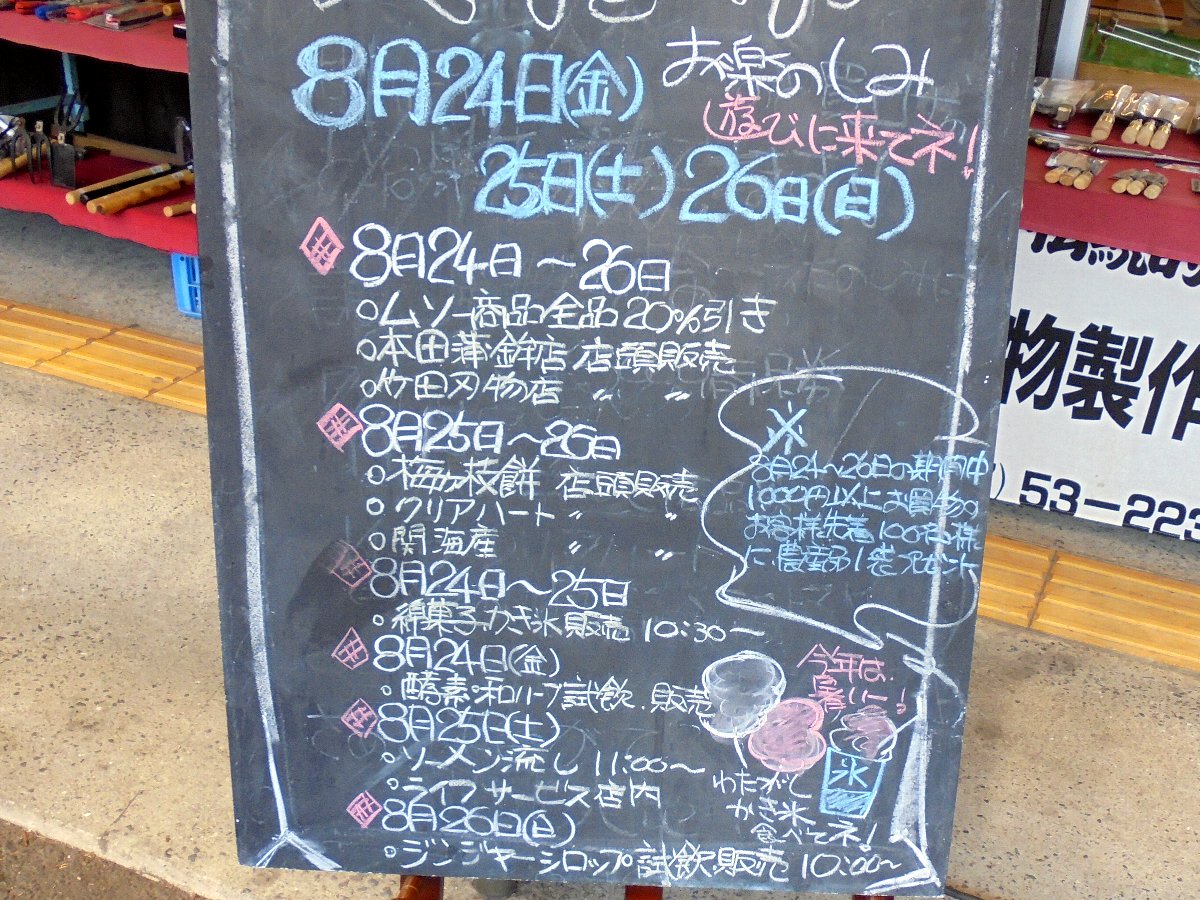 8月24日(金)
お楽のしみ
遊びに来てネ!
25日(土) 26日(日)
8月24日～26日
○ムソー商品全品20%引き
○本田蒲鉾店 店頭販売
○竹田刃物店 〃 〃
8月25日～26日
○梅ヶ枝餅 店頭販売
○クリアハート 〃 〃
○関海産 〃 〃
8月24日～25日
○綿菓子かき氷販売 10:30～
8月24日(金)
○酵素・和ハーブ試飲.販売
8月25日(土)
○ソーメン流し 11:00～
○ライフサービス店内
8月26日(日)
○ジンジャーシロップ試飲.販売 10:00～
※
8月24～26日の期間中
1,000円以上お買物の
お客様先着100名様
に.農産品1袋プレゼント
今年は.
暑いー!
氷
わたがし
かき氷
食べてネ!
物製作
53-223